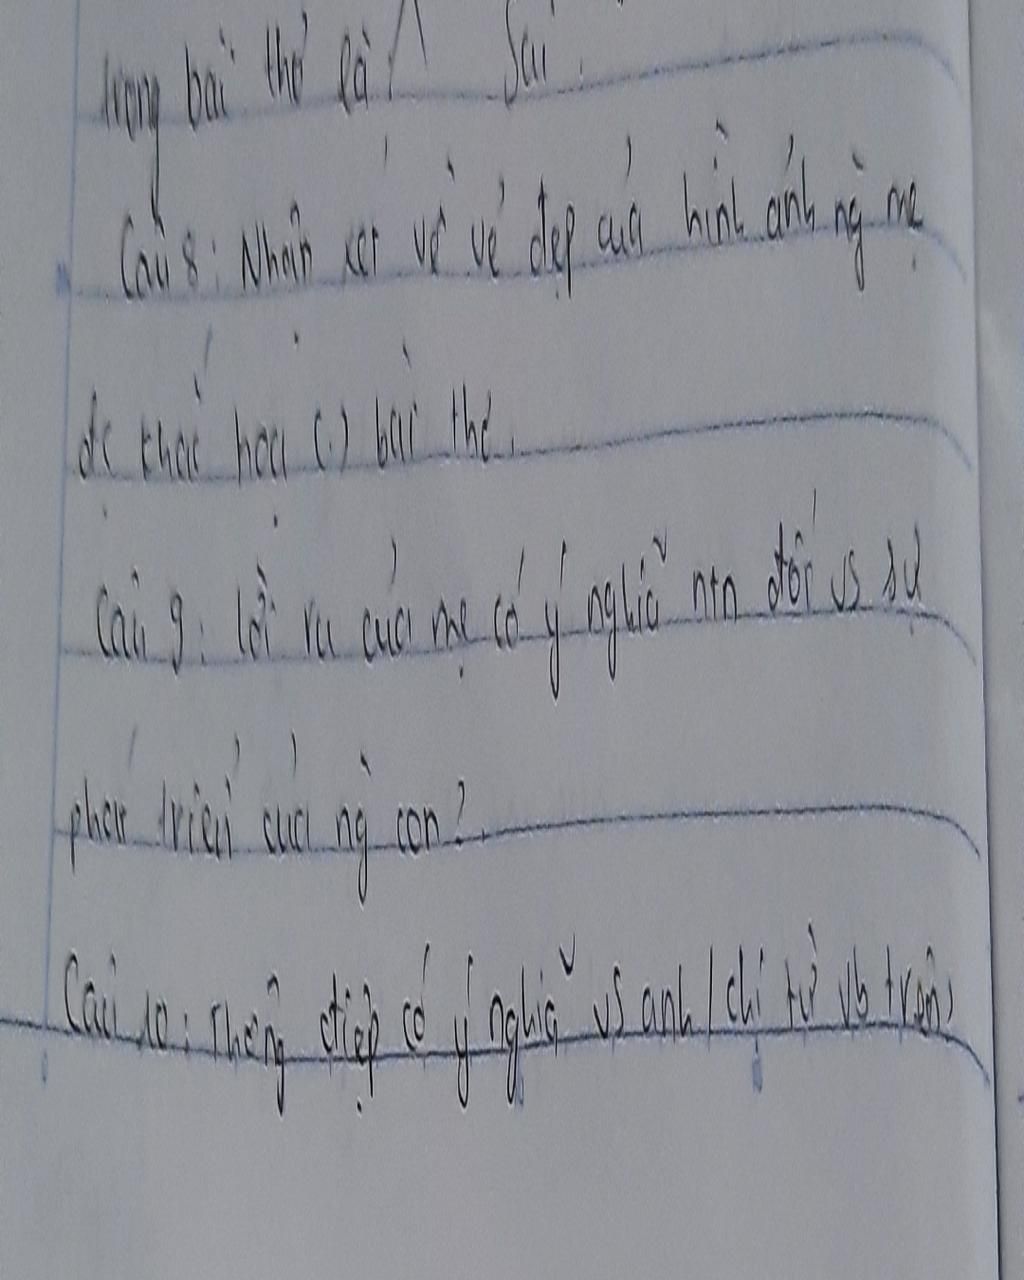 trong bài thơ là Sai.
Câu 8: Nhận xét về vẻ đẹp của hình ảnh ng mẹ
đc khắc hoạ (.) bài thơ.
Câu 9: lời ru của mẹ có ý nghĩa ntn đối vs sự
phát triển của ng con?
Câu 10: Thông điệp có ý nghĩa vs anh/chị từ vb trên,